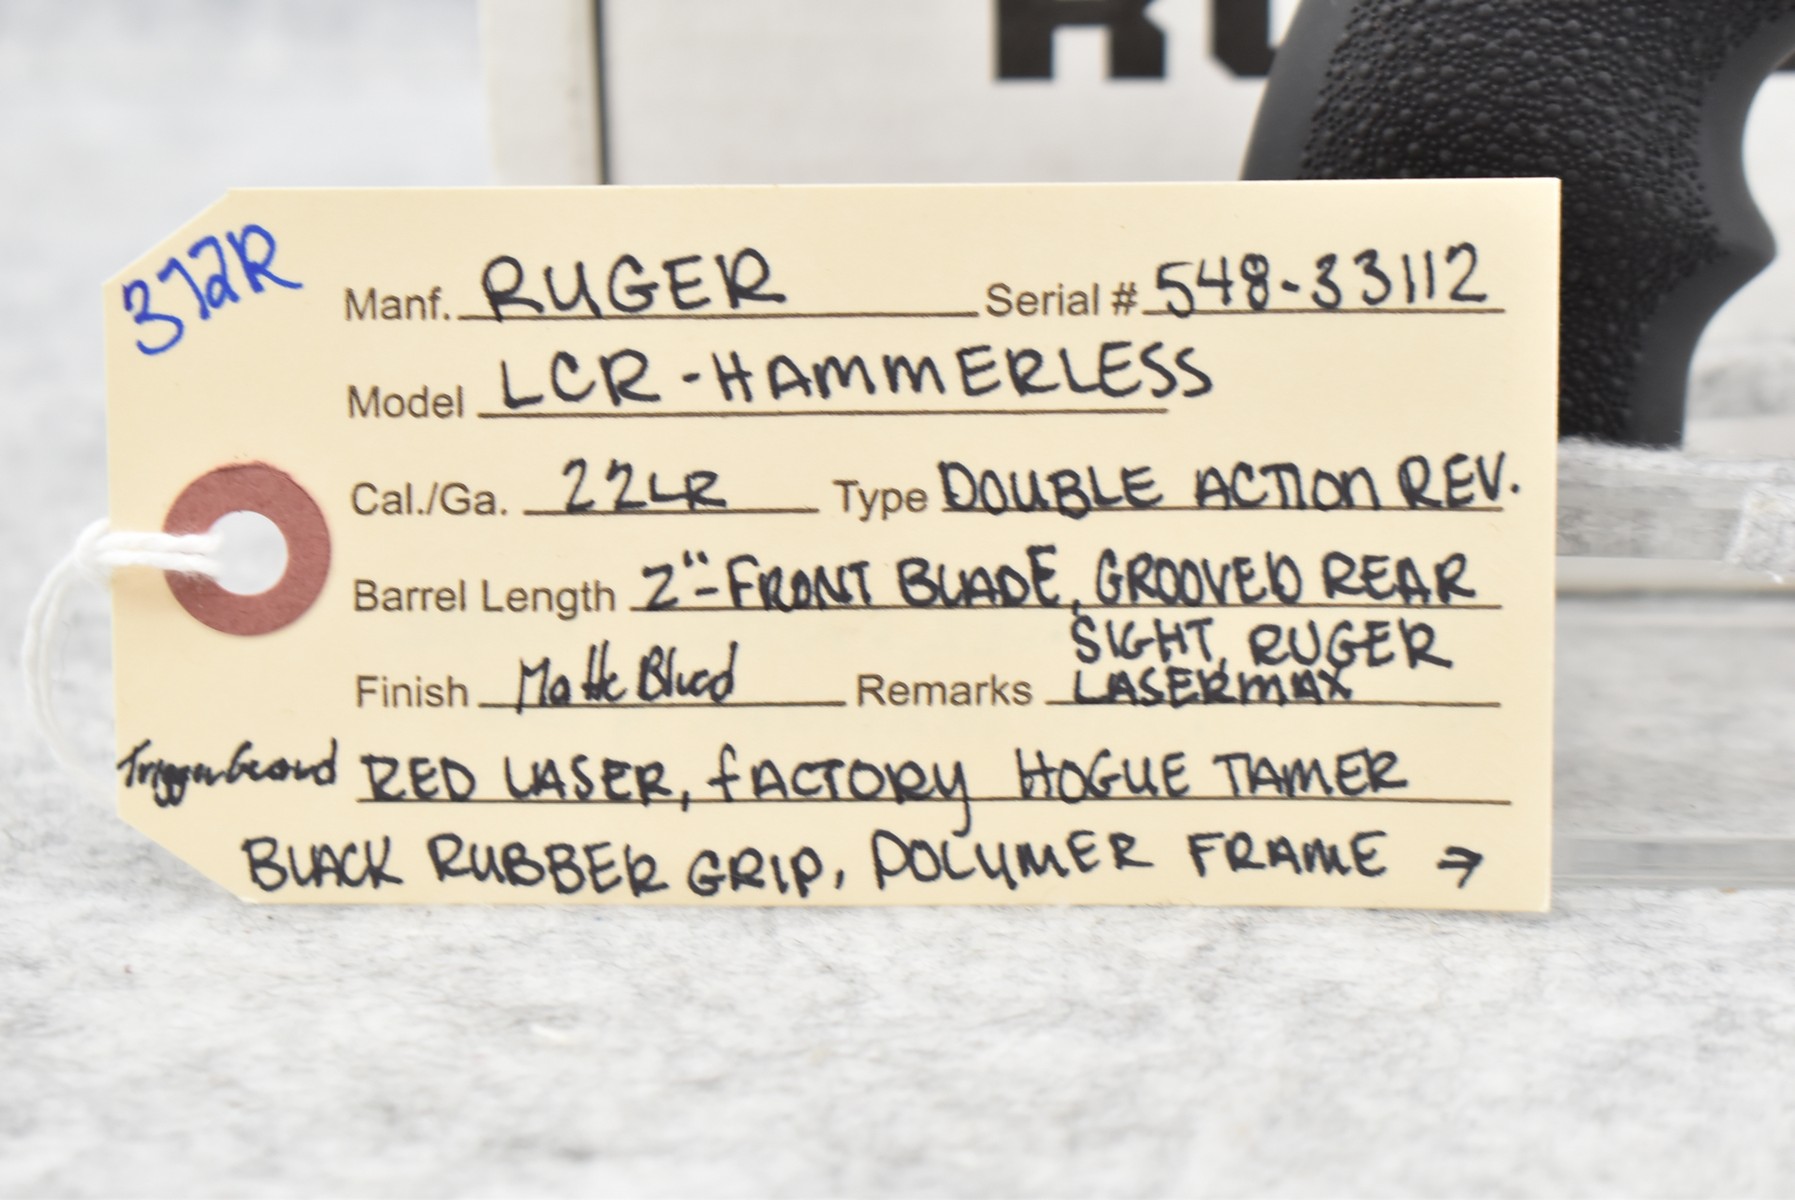 RU
372R
Manf. RUGER Serial # 548-33112
Model LCR - HAMMERLESS
Cal./Ga. 22LR Type DOUBLE ACTION REV.
Barrel Length 2" - FRONT BLADE, GROOVED REAR
SIGHT, RUGER
Finish Matte Blued Remarks LASERMAX
Trigger Guard RED LASER, FACTORY HOGUE TAMER
BLACK RUBBER GRIP, POLYMER FRAME →